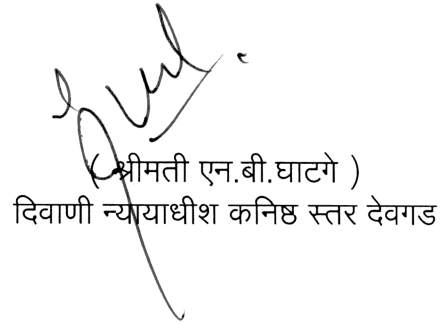 ( श्रीमती एन.बी.घाटगे )
दिवाणी न्यायाधीश कनिष्ठ स्तर देवगड